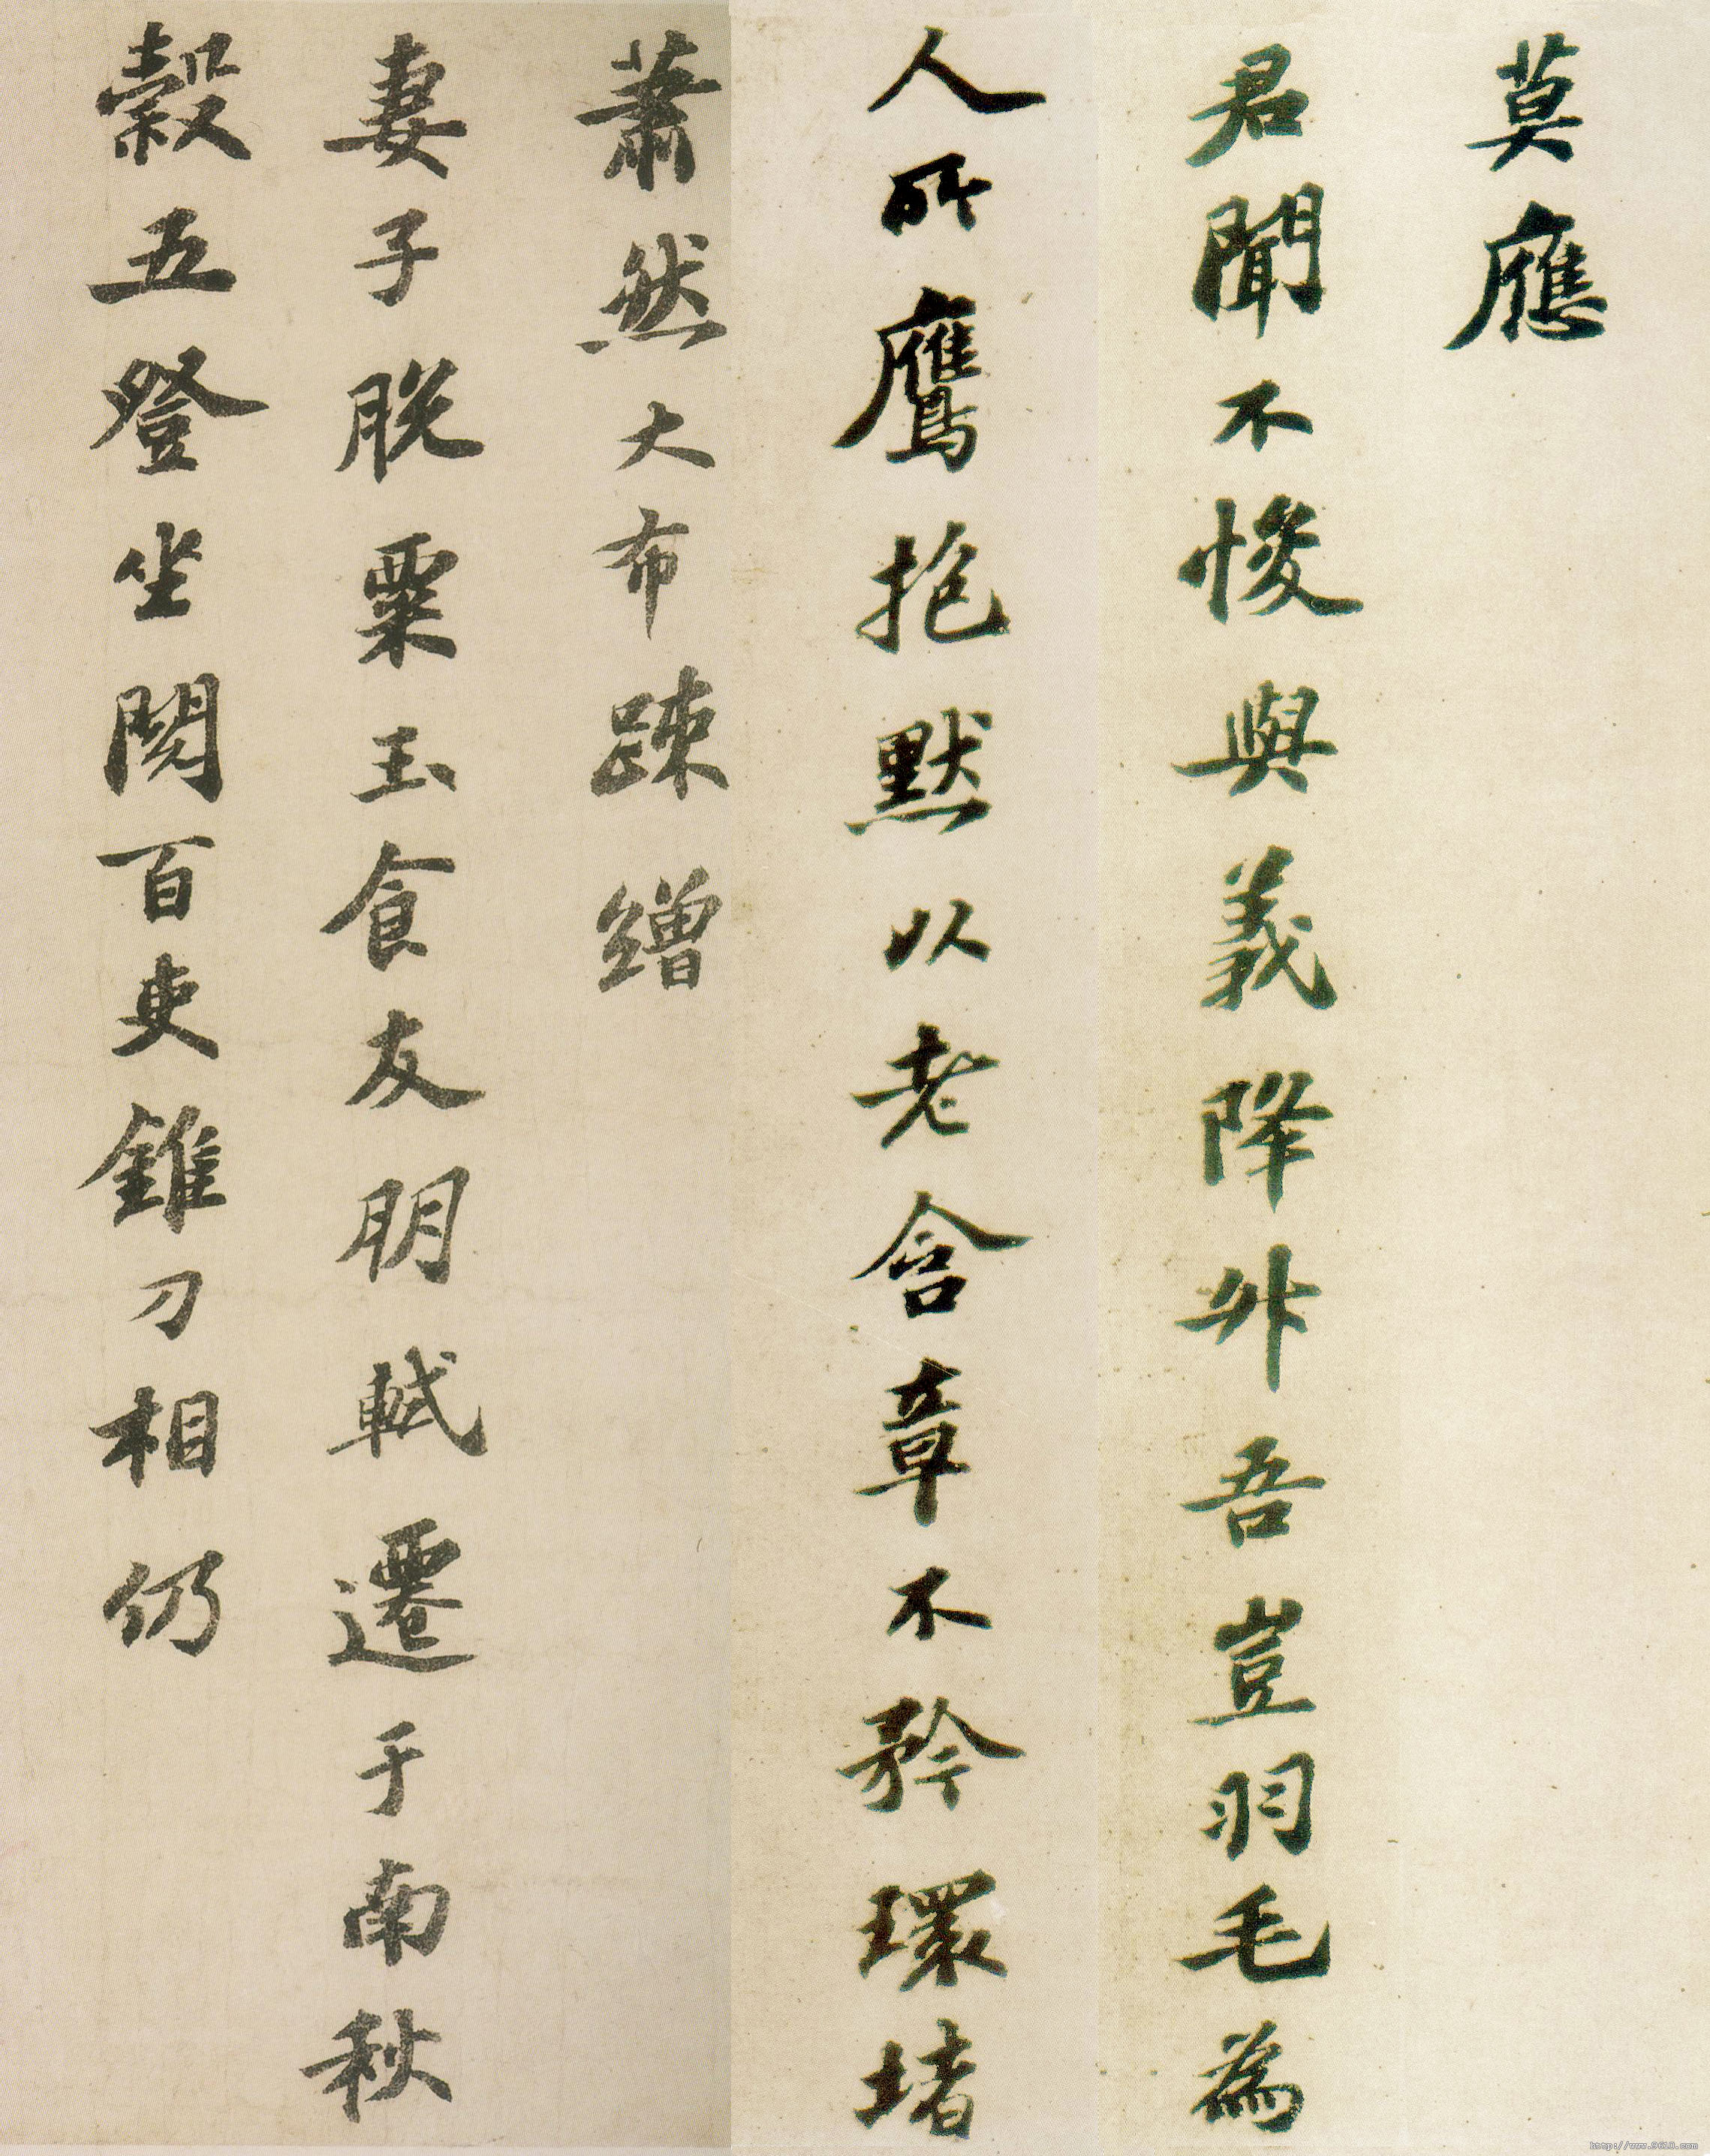 莫應
君聞不悛與義降升吾豈羽毛為
人所鷹抱默以老含章不矜環堵
蕭然大布疎繒
妻子脫粟玉食友朋軾遷于南秋
穀五登坐閱百吏錐刀相仍
http://www.9610.com